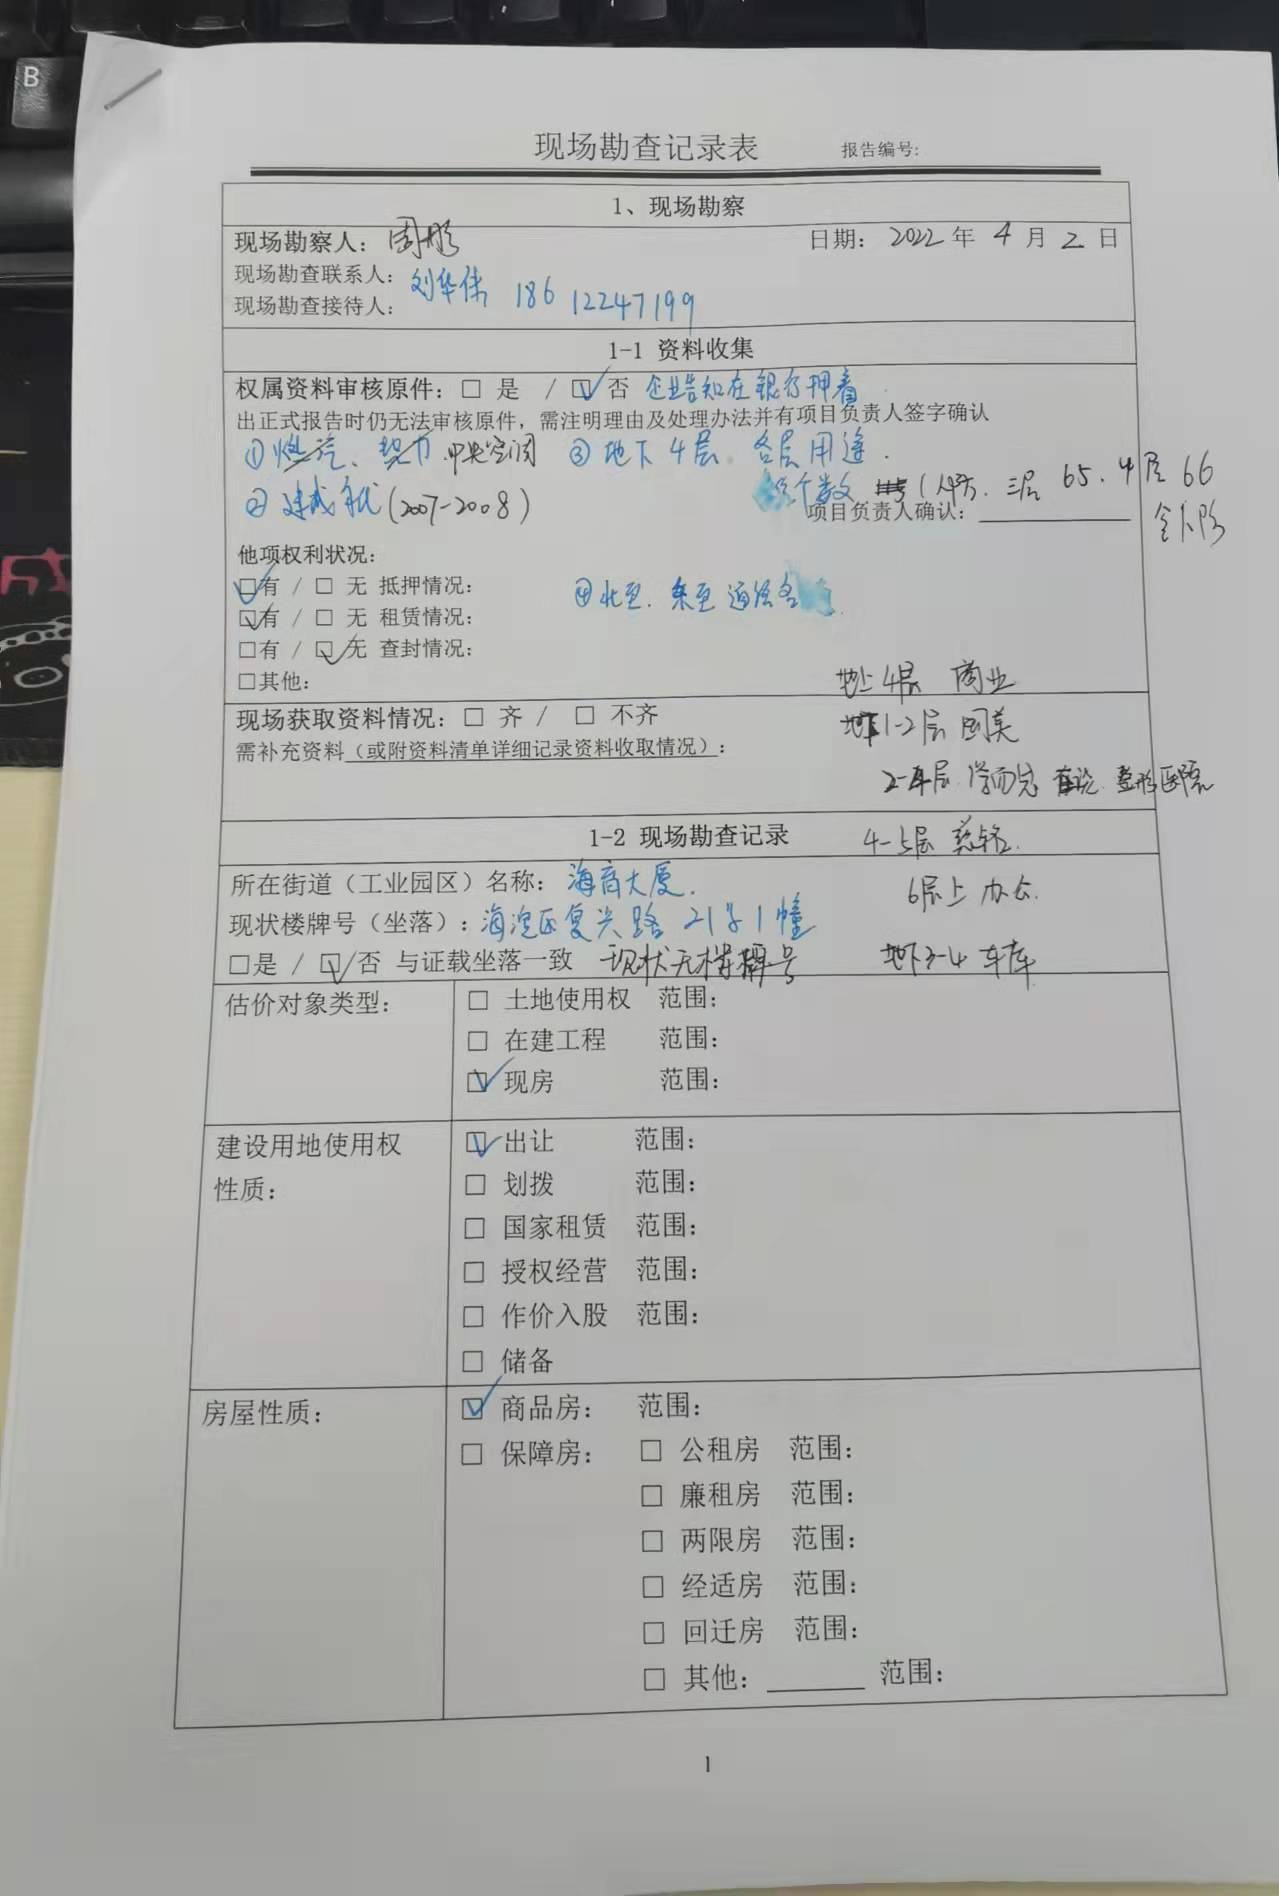 B
现场勘查记录表 报告编号:
1、现场勘察
现场勘察人: 周彤 日期: 2022 年 4 月 2 日
现场勘查联系人:
刘华伟 18612247199
现场勘查接待人:
1-1 资料收集
权属资料审核原件: □ 是 / ☑ 否 企业告知在银行押着
出正式报告时仍无法审核原件，需注明理由及处理办法并有项目负责人签字确认
①燃气、热力 中央空调 ③地下4层 各层用途.
②建成年代(2007-2008) 个数 三层 65. 4层 66
项目负责人确认:
他项权利状况:
☑有 / □ 无 抵押情况:
④北至. 东至 道路名
☑有 / □ 无 租赁情况:
□有 / ☑ 无 查封情况:
□其他:
地上4层 商业
现场获取资料情况: □ 齐 / □ 不齐
地下1-2层 国美
需补充资料（或附资料清单详细记录资料收取情况）:
2-4层 学而思 整形医院
1-2 现场勘查记录
4-5层
所在街道（工业园区）名称: 海育大厦.
6层上 办公.
现状楼牌号（坐落）: 海淀区复兴路 21号1幢
□是 / ☑否 与证载坐落一致 现状无楼牌号 地下3-4 车库
估价对象类型: □ 土地使用权 范围:
□ 在建工程 范围:
☑ 现房 范围:
建设用地使用权 ☑ 出让 范围:
性质: □ 划拨 范围:
□ 国家租赁 范围:
□ 授权经营 范围:
□ 作价入股 范围:
□ 储备
房屋性质: ☑ 商品房: 范围:
□ 保障房: □ 公租房 范围:
□ 廉租房 范围:
□ 两限房 范围:
□ 经适房 范围:
□ 回迁房 范围:
□ 其他: ______ 范围:
1